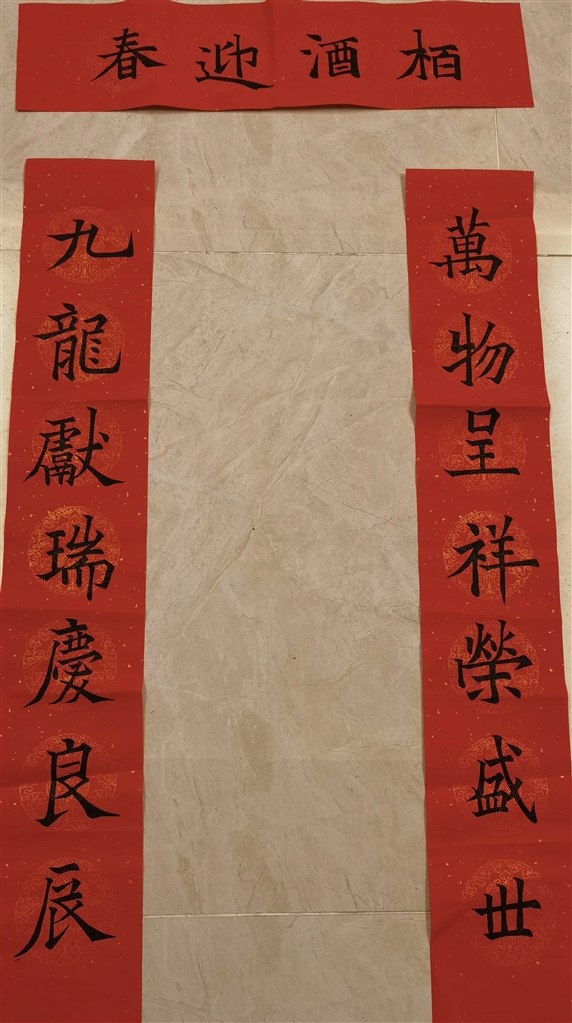 栢酒迎春
萬物呈祥榮盛世
九龍獻瑞慶良辰